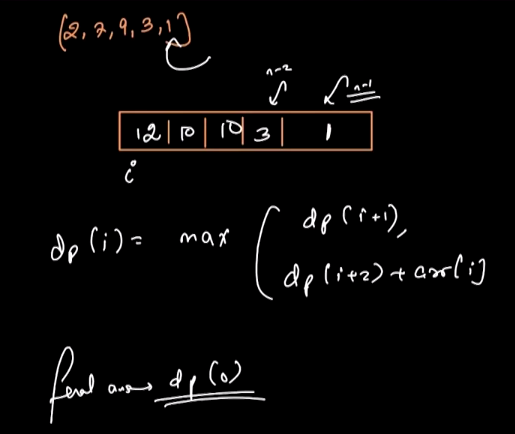 [2, 7, 9, 3, 1]
n-2
n-1
12 | 10 | 10 | 3 | 1
i
dp(i) = max ( dp(i+1),
dp(i+2) + arr[i]
final ans → dp(0)